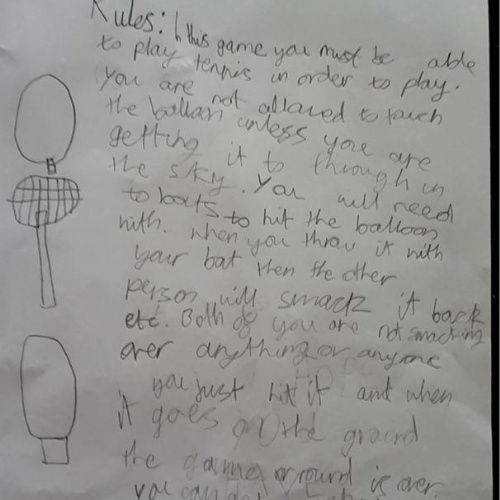 Rules: In this game you must be able
to play tennis in order to play.
you are not allowed to touch
the balloon unless you are
getting it to through in
the sky. You will need
to bats to hit the balloon
with. when you throw it with
your bat then the other
person will smack it back
etc. Both of you are not smacking
over anything or anyone
you just hit it and when
it goes on the ground
the game round is over
you can